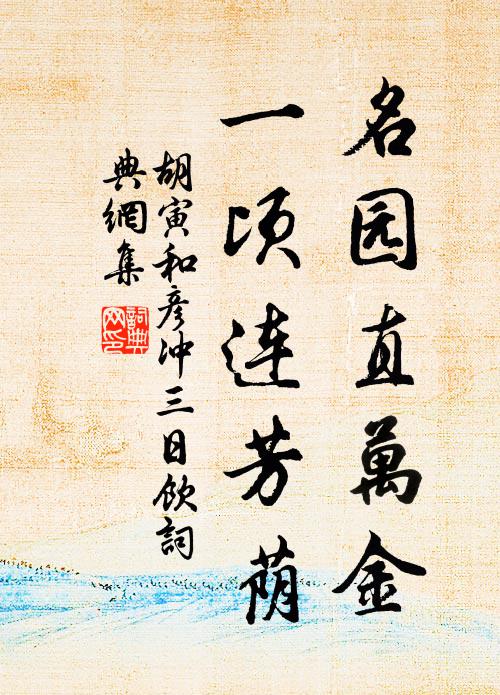 名园直萬金
一顷连芳荫
胡寅和彦冲三日饮詞
典網集
詞典
网印